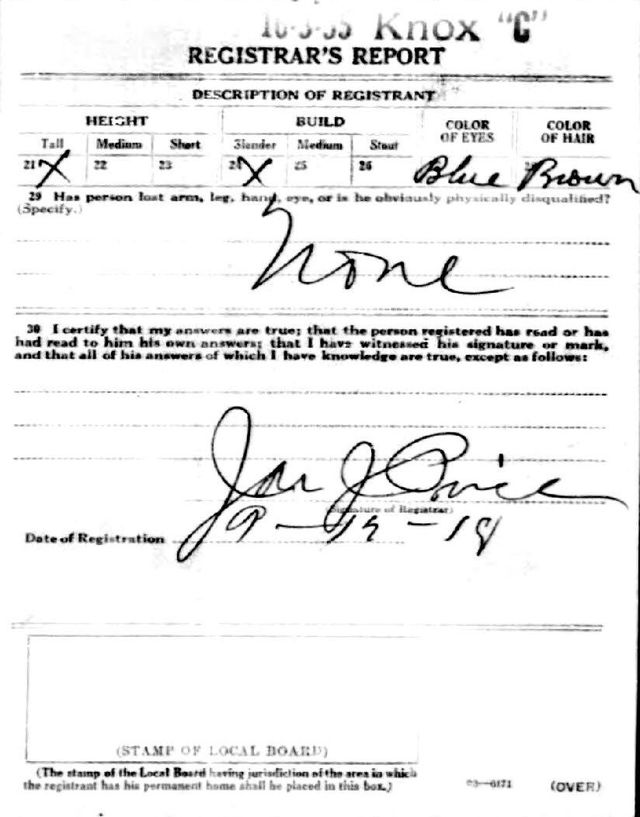 16-3-35 Knox "C"
REGISTRAR'S REPORT
DESCRIPTION OF REGISTRANT
HEIGHT BUILD COLOR OF EYES COLOR OF HAIR
Tall Medium Short Slender Medium Stout
21 X 22 23 24 X 25 26 Blue Brown
29 Has person lost arm, leg, hand, eye, or is he obviously physically disqualified?
(Specify.)
None
30 I certify that my answers are true; that the person registered has read or has
had read to him his own answers; that I have witnessed his signature or mark,
and that all of his answers of which I have knowledge are true, except as follows:
J Price
(Signature of Registrar)
Date of Registration 9-12-18
(STAMP OF LOCAL BOARD)
(The stamp of the Local Board having jurisdiction of the area in which
the registrant has his permanent home shall be placed in this box.)
03—6171 (OVER)